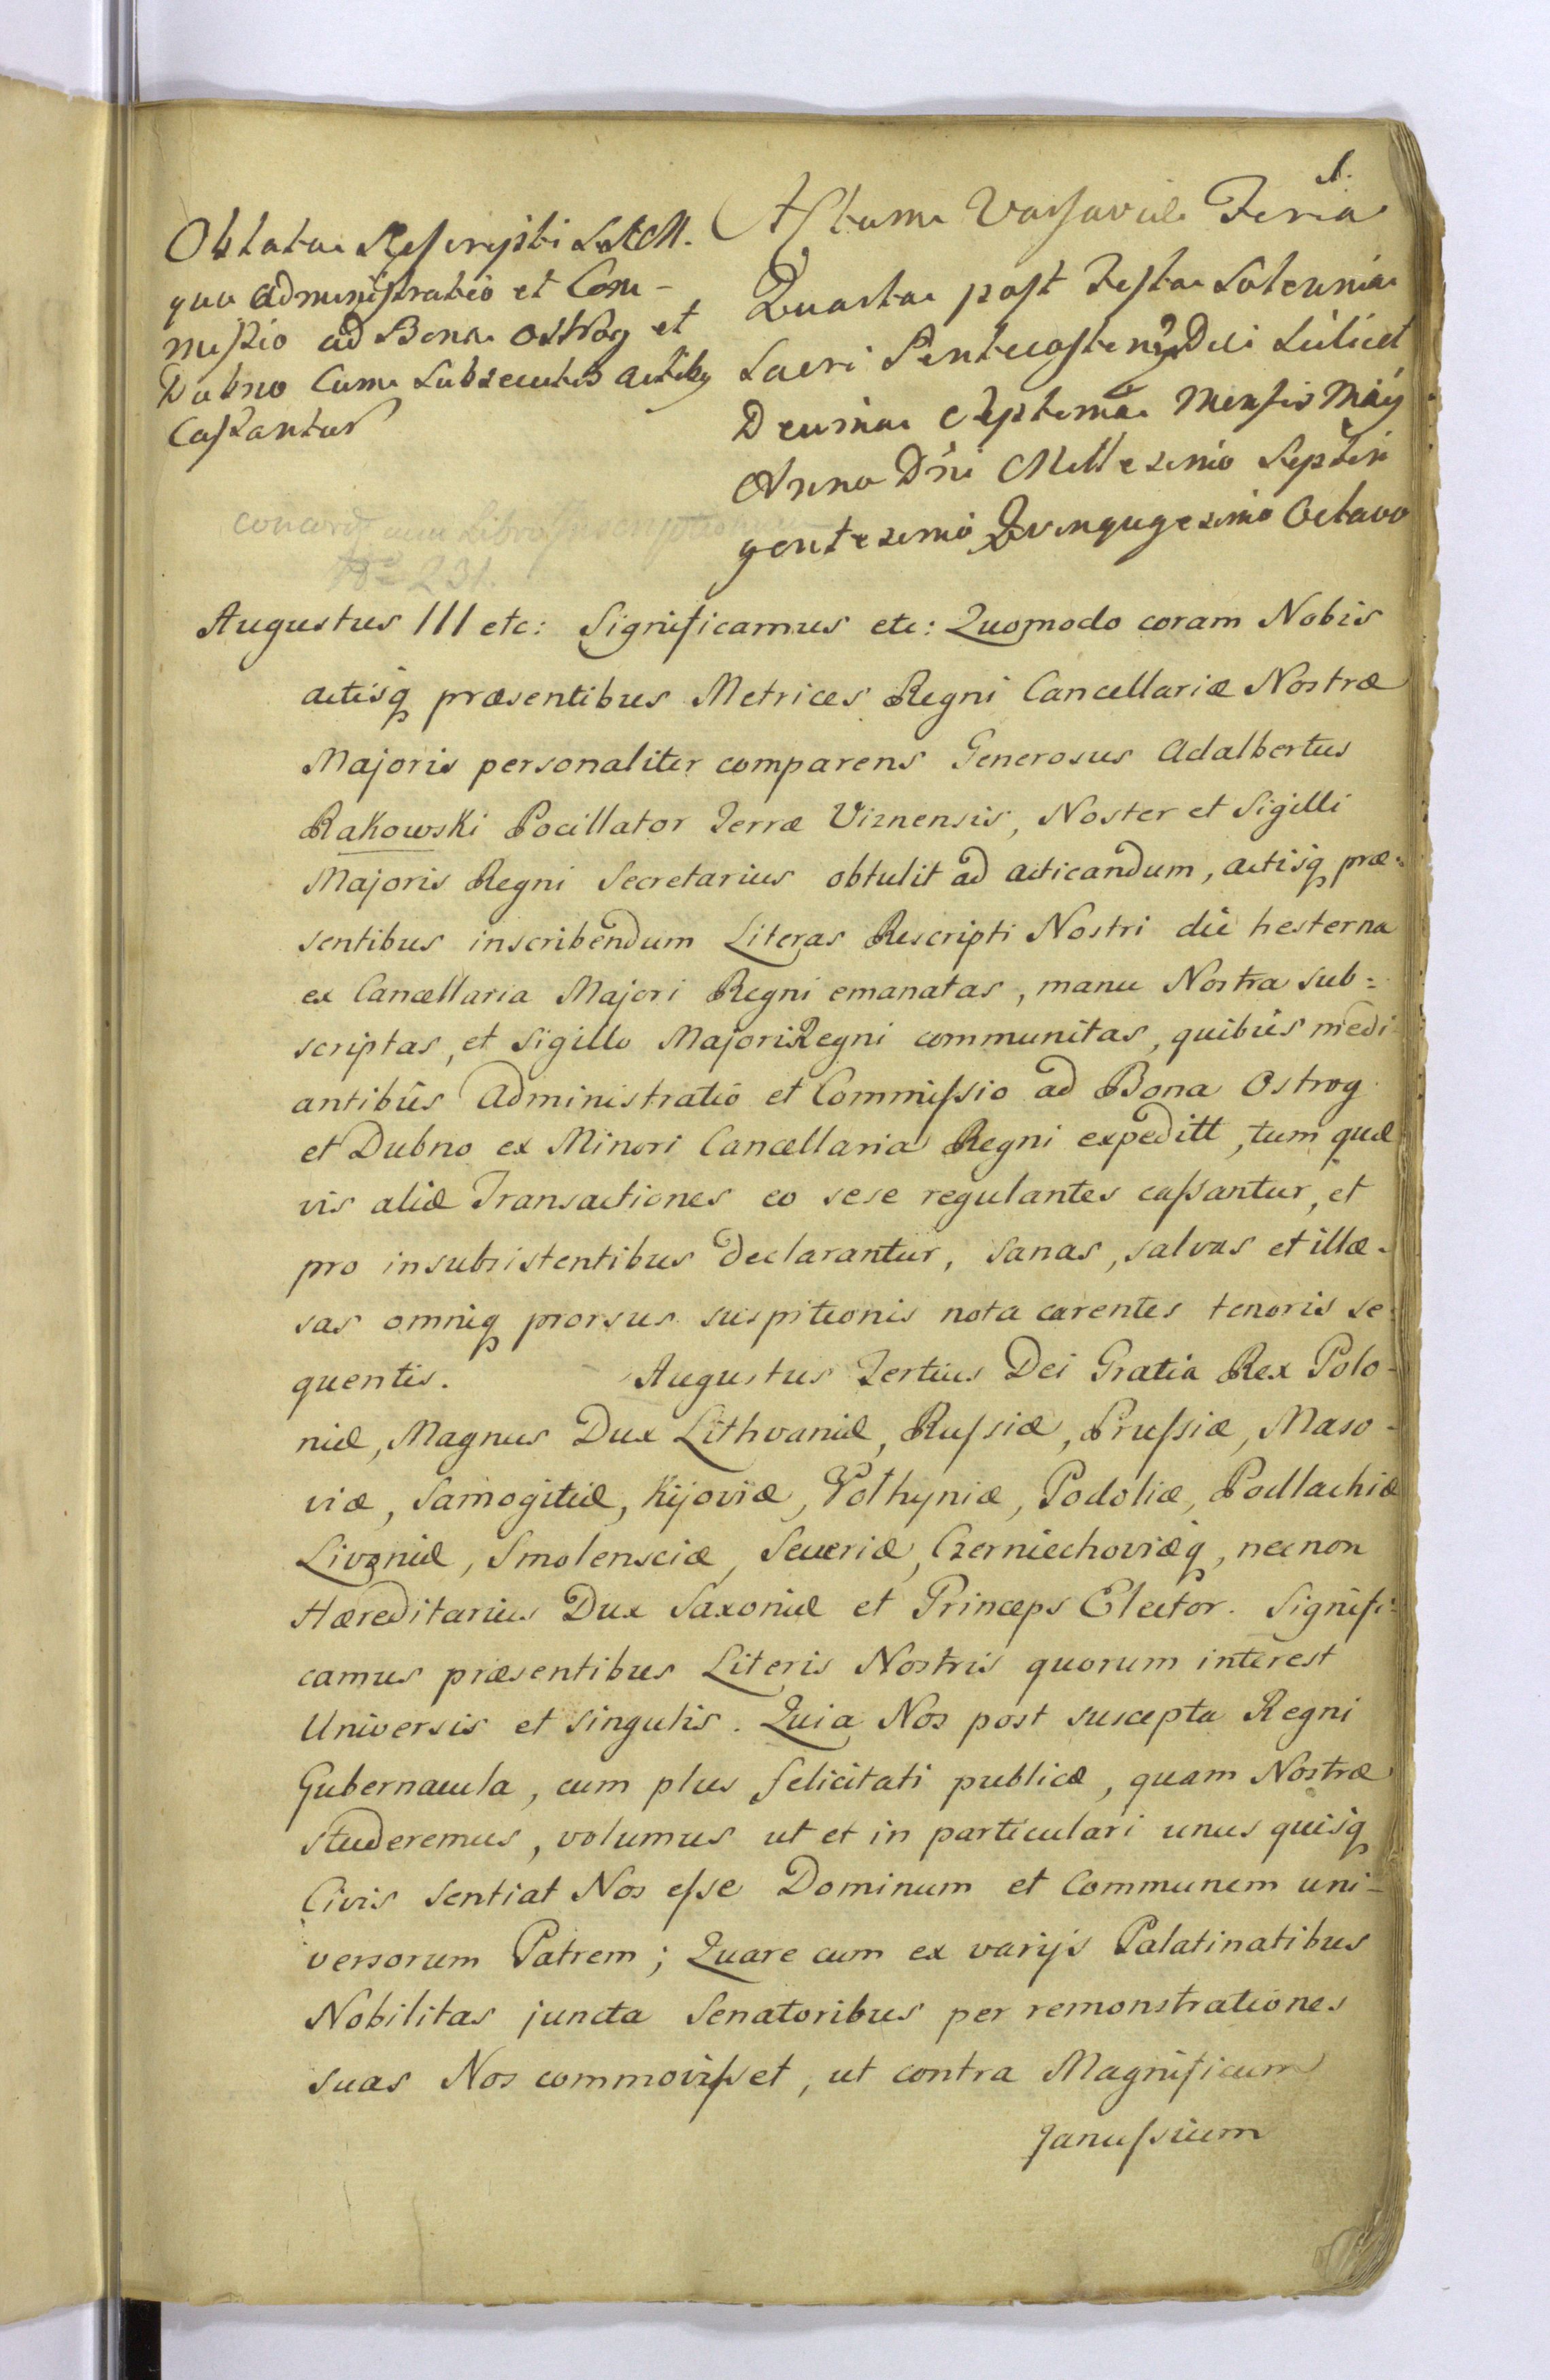 1.
Oblata Rescripti S.R.M.
quo administratio et Com-
missio ad Bona Ostrog et
Dubno cum subsecutis actibq
cassantur
Actum Varsaviæ Feria
Quarta post Festa Solennia
Sacri Pentecostes, Die scilicet
Decima Septima Mensis Maij
Anno Dni Millesimo Septin
gentesimo Qvinquagesimo Octavo
concord. cum Libro Inscriptionum
No 231.
Augustus III etc: Significamus etc: Quomodo coram Nobis
actisq præsentibus Metrices Regni Cancellariæ Nostræ
Majoris personaliter comparens Generosus Adalbertus
Rakowski Pocillator Terræ Viznensis, Noster et Sigilli
Majoris Regni Secretarius obtulit ad acticandum, actisq præ=
sentibus inscribendum Literas Rescripti Nostri die hesterna
ex Cancellaria Majori Regni emanatas, manu Nostra sub=
scriptas, et sigillo Majori Regni communitas, quibus medi
antibus Administratio et Commissio ad Bona Ostrog
et Dubno ex Minori Cancellaria Regni expeditt, tum quæ
vis aliæ Transactiones eo sese regulantes cassantur, et
pro insubsistentibus declarantur, sanas, salvas et illæ-
sas omniq prorsus suspitionis nota carentes tenoris se=
quentis. Augustus Tertius Dei Gratia Rex Polo-
niæ, Magnus Dux Lithvaniæ, Russiæ, Prussiæ, Maso-
viæ, Samogitiæ, Kijoviæ, Volhyniæ, Podoliæ, Podlachiæ
Livoniæ, Smolensciæ, Severiæ, Czerniechoviæq, necnon
Hæreditarius Dux Saxoniæ et Princeps Elector. Signifi=
camus præsentibus Literis Nostris quorum interest
Universis et singulis. Quia Nos post suscepta Regni
Gubernacula, cum plus felicitati publicæ, quam Nostræ
studeremus, volumus ut et in particulari unus quisq
Civis sentiat Nos esse Dominum et Communem uni-
versorum Patrem; Quare cum ex varijs Palatinatibus
Nobilitas juncta Senatoribus per remonstrationes
suas Nos commovisset, ut contra Magnificum
Janussium